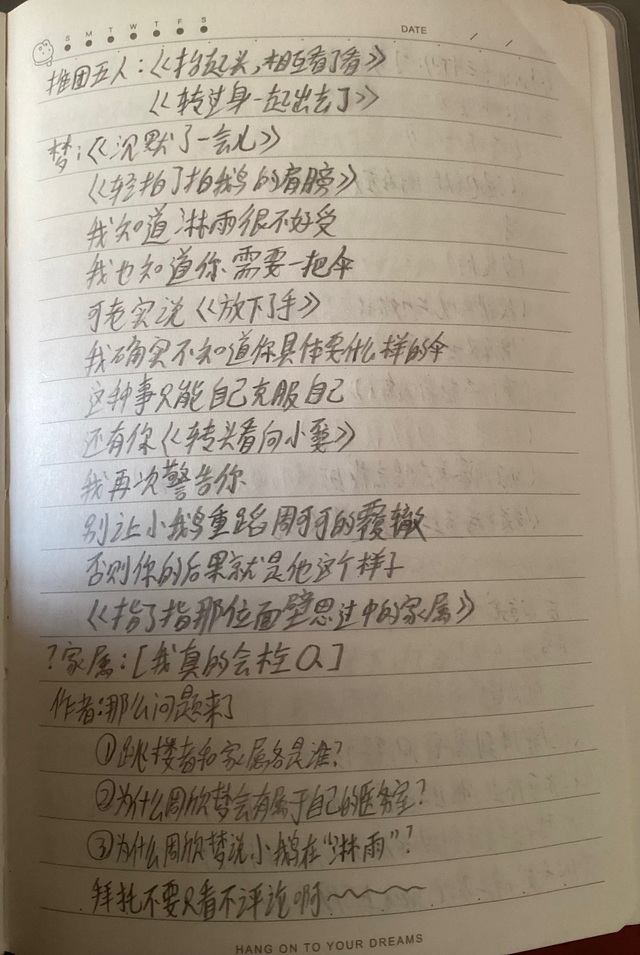 S M T W T F S
DATE / /
推团五人：《抬起头，相互看了看》
《转过身一起出去了》
梦：《沉默了一会儿》
《轻拍了拍鹅的肩膀》
我知道淋雨很不好受
我也知道你需要一把伞
可老实说《放下了手》
我确实不知道你具体要什么样的伞
这种事只能自己克服自己
还有你《转头看向小婴》
我再次警告你
别让小鹅重蹈周可可的覆辙
否则你的后果就是他这个样子
《指了指那位面壁思过中的家属》
？家属：[我真的会栓Q]
作者：那么问题来了
①跳楼者和家属各是谁？
②为什么周欣梦会有属于自己的医务室？
③为什么周欣梦说小鹅在“淋雨”？
拜托不要只看不评论啊～～～
HANG ON TO YOUR DREAMS